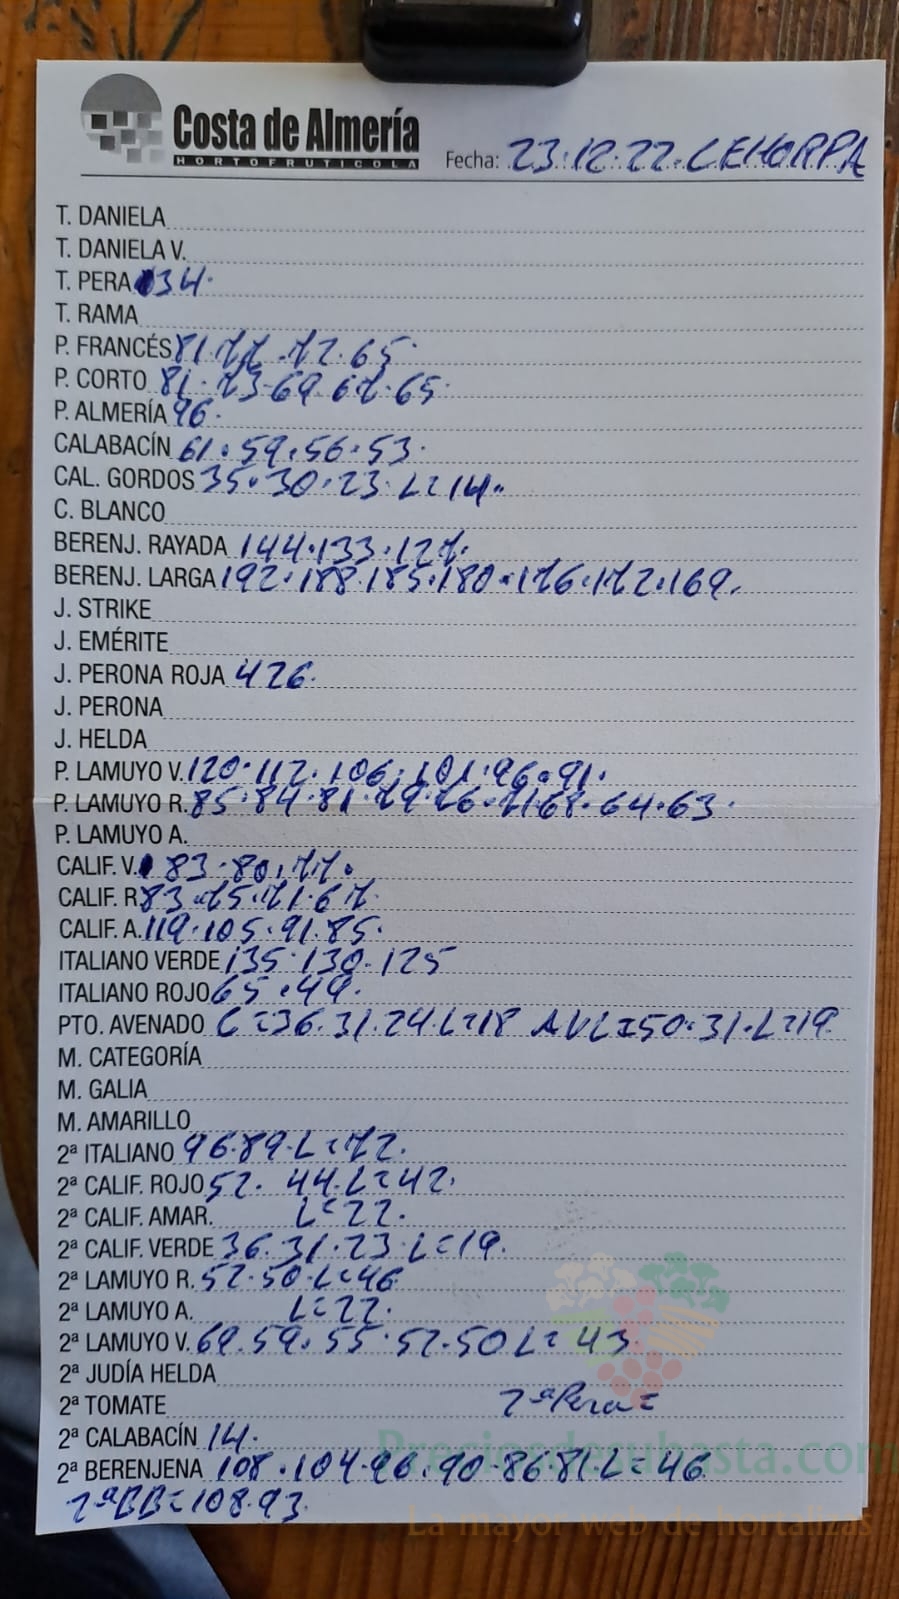 Costa de Almería
HORTOFRUTICOLA
Fecha: 23.12.22. CEHORPA
T. DANIELA
T. DANIELA V.
T. PERA 34.
T. RAMA
P. FRANCÉS 81.77.72.65.
P. CORTO 81.73.69.67.65.
P. ALMERÍA 96.
CALABACÍN 61.59.56.53.
CAL. GORDOS 35.30.23.L=14..
C. BLANCO
BERENJ. RAYADA 144.133.127.
BERENJ. LARGA 192.188.185.180.176.172.169.
J. STRIKE
J. EMÉRITE
J. PERONA ROJA 426.
J. PERONA
J. HELDA
P. LAMUYO V. 120.112.106.101.96.91.
P. LAMUYO R. 85.84.81.79.76.71.68.64.63.
P. LAMUYO A.
CALIF. V. 83.80.77.
CALIF. R 83.75.71.67.
CALIF. A. 119.105.91.85.
ITALIANO VERDE 135.130.125
ITALIANO ROJO 65.49.
PTO. AVENADO C=36.31.24.L=18 AVL=50.31.L=19
M. CATEGORÍA
M. GALIA
M. AMARILLO
2ª ITALIANO 96.89.L=72.
2ª CALIF. ROJO 52. 44.L=42.
2ª CALIF. AMAR. L=22.
2ª CALIF. VERDE 36.31.23.L=19.
2ª LAMUYO R. 52.50.L=46
2ª LAMUYO A. L=22.
2ª LAMUYO V. 69.59.55.52.50 L=43
2ª JUDÍA HELDA
2ª TOMATE 2ª Pera=
2ª CALABACÍN 14.
2ª BERENJENA 108.104.96.90.86.81 L=46
2ªBB=108.93.
Preciosdesubasta.com
La mayor web de hortalizas